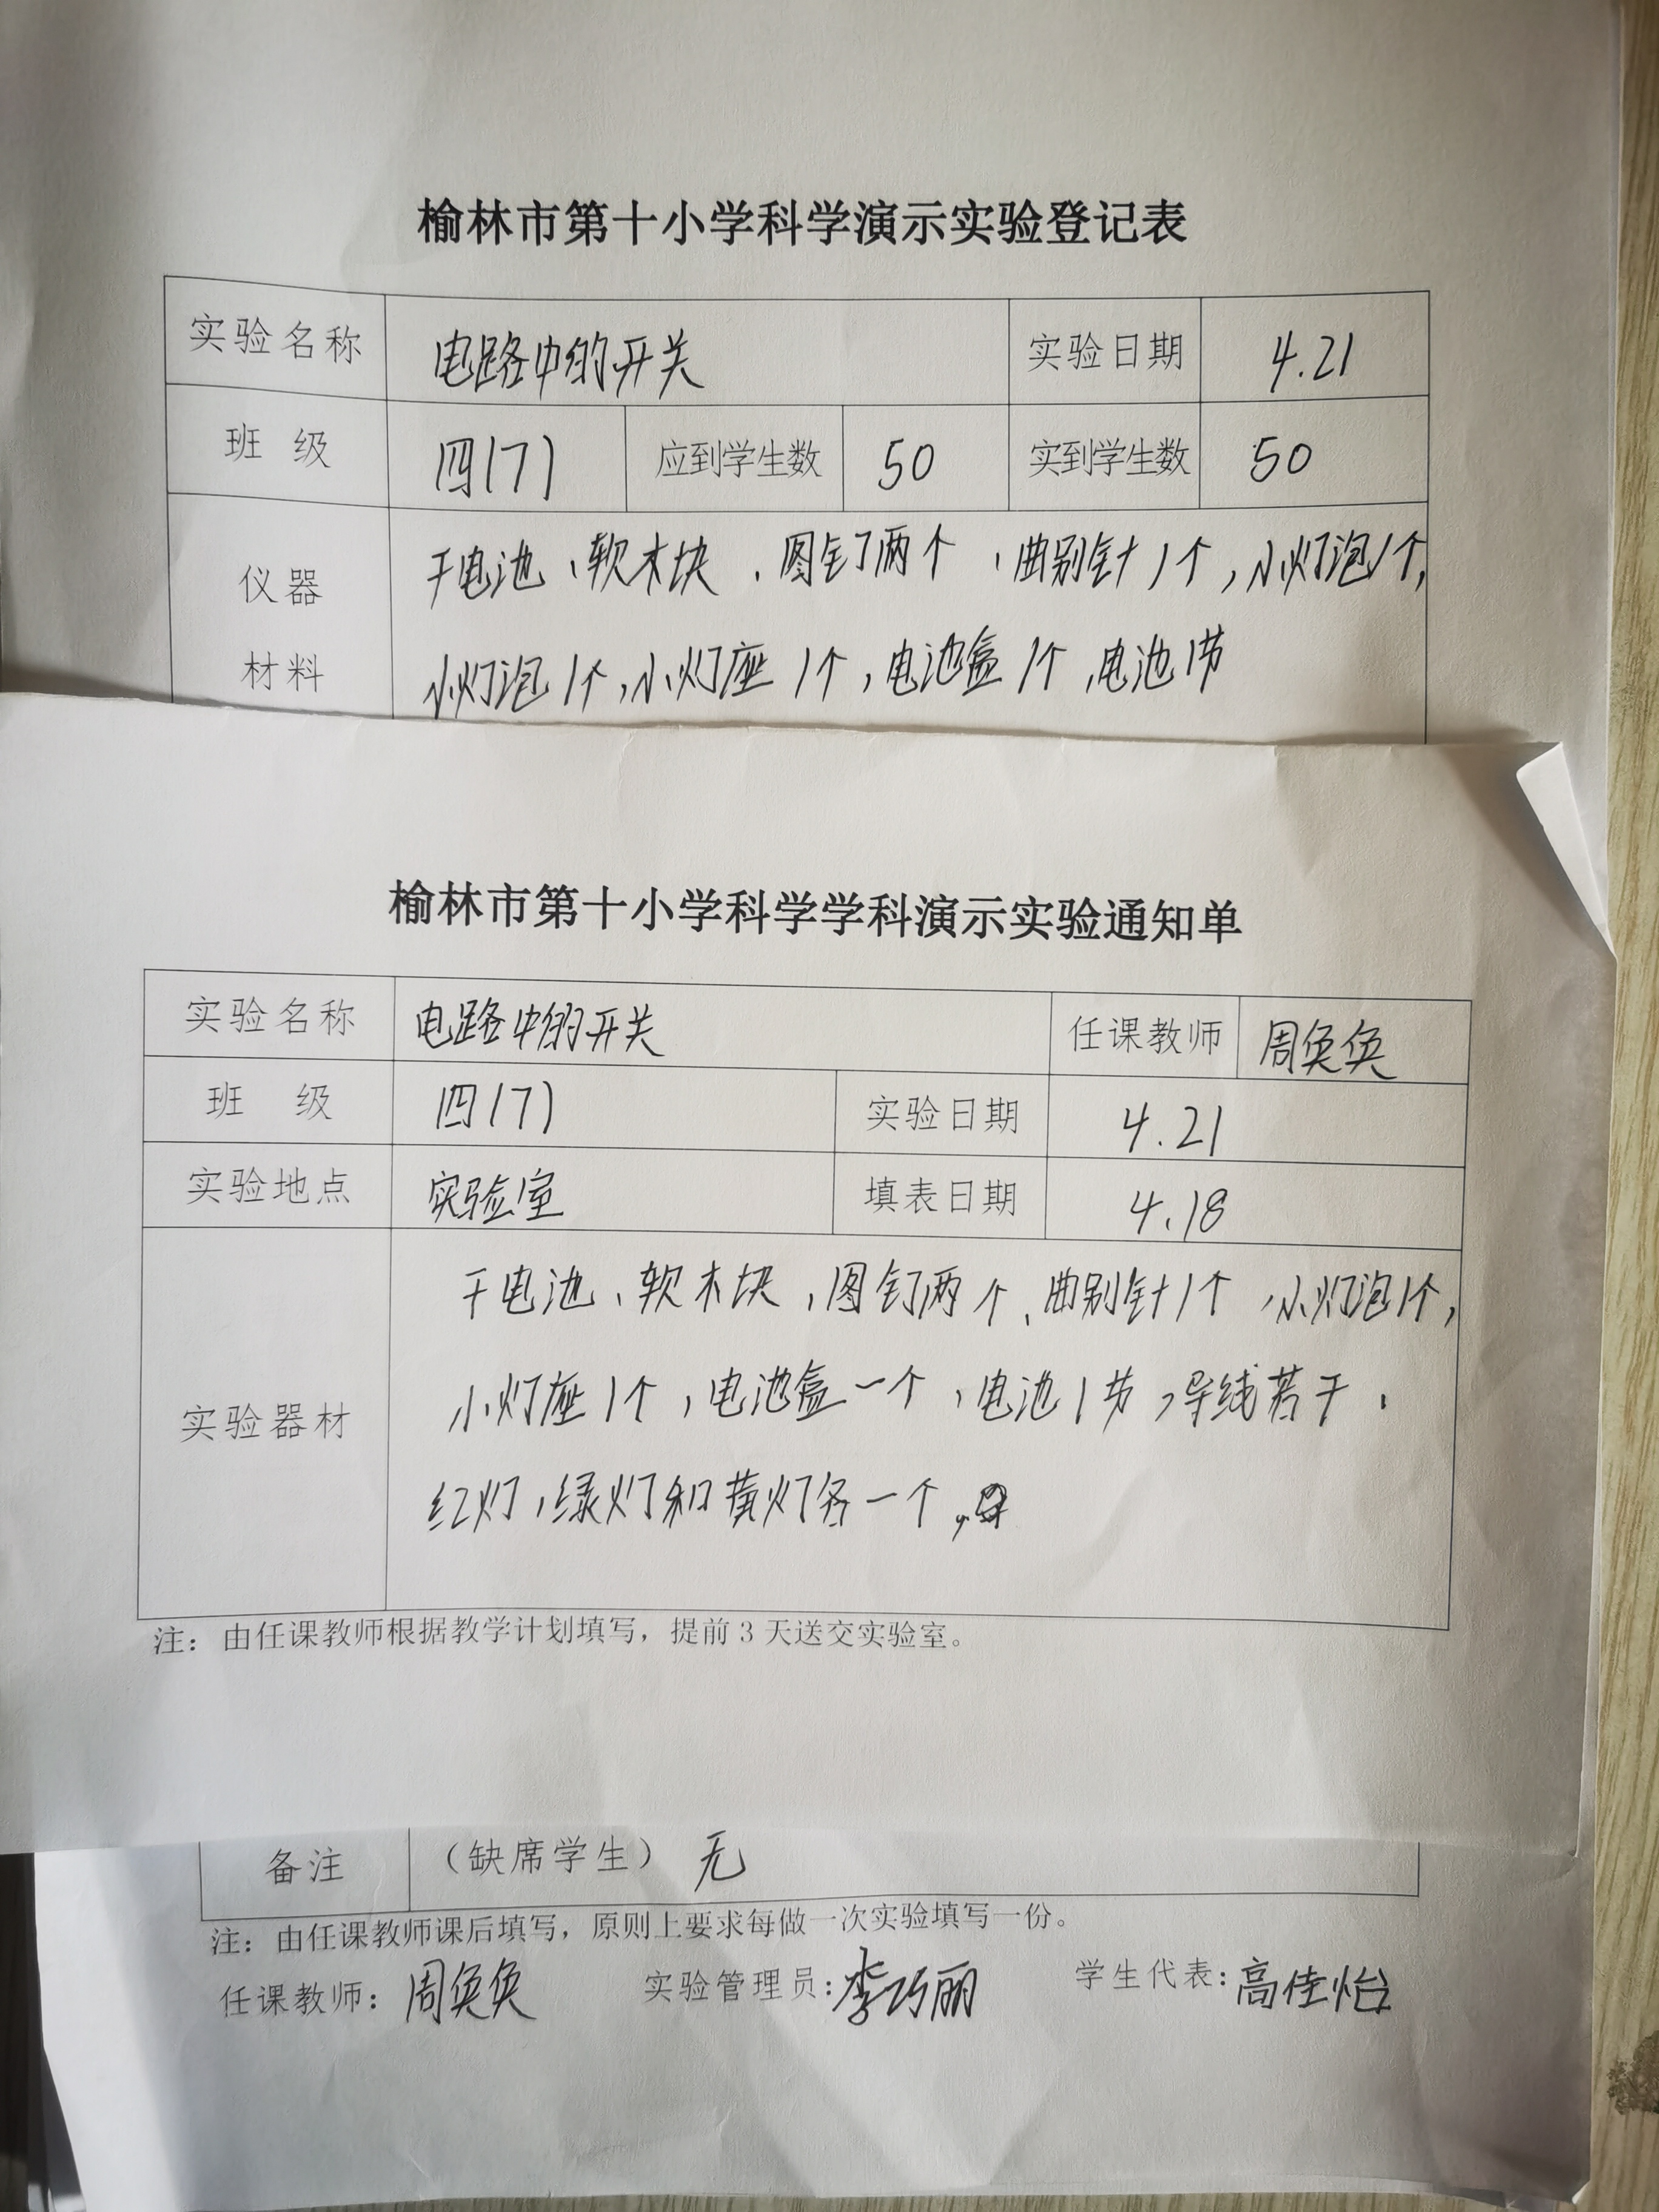 榆林市第十小学科学演示实验登记表
实验名称 电路中的开关 实验日期 4.21
班 级 四(7) 应到学生数 50 实到学生数 50
仪器 干电池、软木块、图钉两个、曲别针1个,小灯泡1个,
材料 小灯泡1个,小灯座1个,电池盒1个,电池1节
榆林市第十小学科学学科演示实验通知单
实验名称 电路中的开关 任课教师 周奂奂
班 级 四(7) 实验日期 4.21
实验地点 实验室 填表日期 4.18
干电池、软木块,图钉两个、曲别针1个,小灯泡1个,
实验器材 小灯座1个,电池盒一个,电池1节,导线若干、
红灯,绿灯和黄灯各一个,
注：由任课教师根据教学计划填写，提前3天送交实验室。
备注 （缺席学生） 无
注：由任课教师课后填写，原则上要求每做一次实验填写一份。
任课教师：周奂奂 实验管理员：李巧丽 学生代表：高佳怡